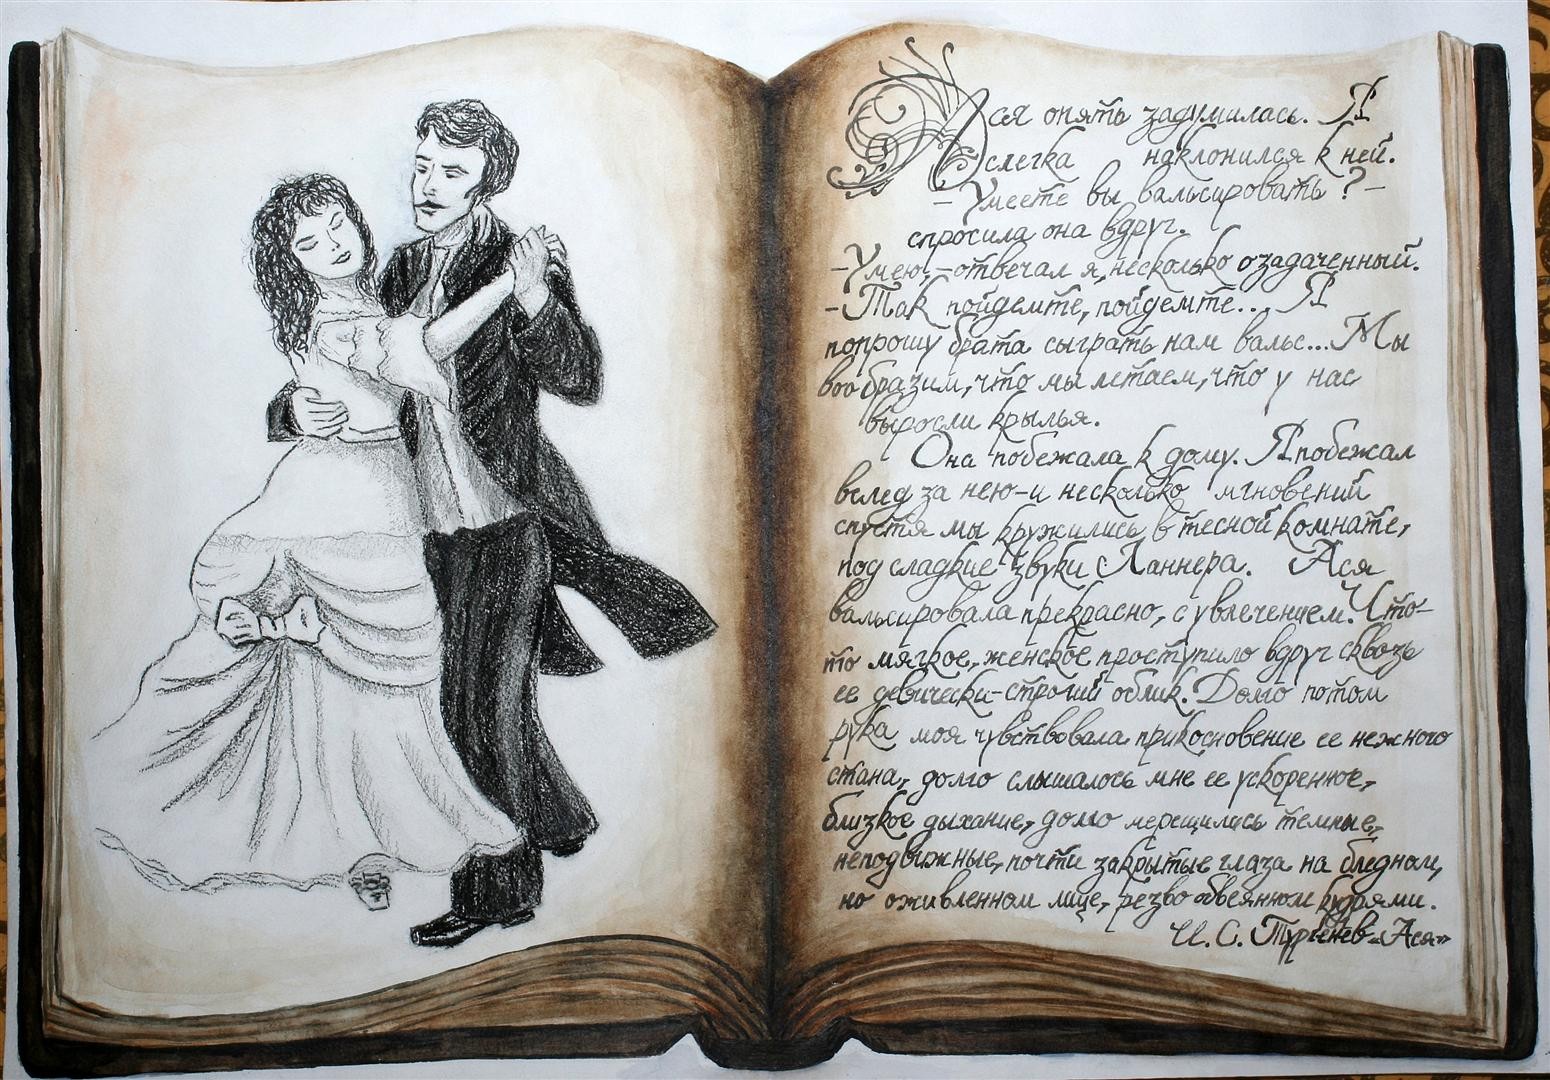 Ася опять задумилась. Я
слегка наклонился к ней.
- Умеете вы вальсировать ? -
спросила она вдруг.
- Умею, - отвечал я, несколько озадаченный.
- Так пойдемте, пойдемте... Я
попрошу брата сыграть нам вальс... Мы
вообразим, что мы летаем, что у нас
выросли крылья.
Она побежала к дому. Я побежал
вслед за нею - и несколько мгновений
спустя мы кружились в тесной комнате,
под сладкие звуки с Ланнера. Ася
вальсировала прекрасно, с увлечением. Что-
то мягкое, женское проступило вдруг сквозь
ее девически-строгий облик. Долго потом
рука моя чувствовала прикосновение ее нежного
стана, долго слышалось мне ее ускоренное,
близкое дыхание, долго мерещились темные,
неподвижные, почти закрытые глаза на бледном,
но оживленном лице, резво обвеянном кудрями.
И. С. Тургенев "Ася"